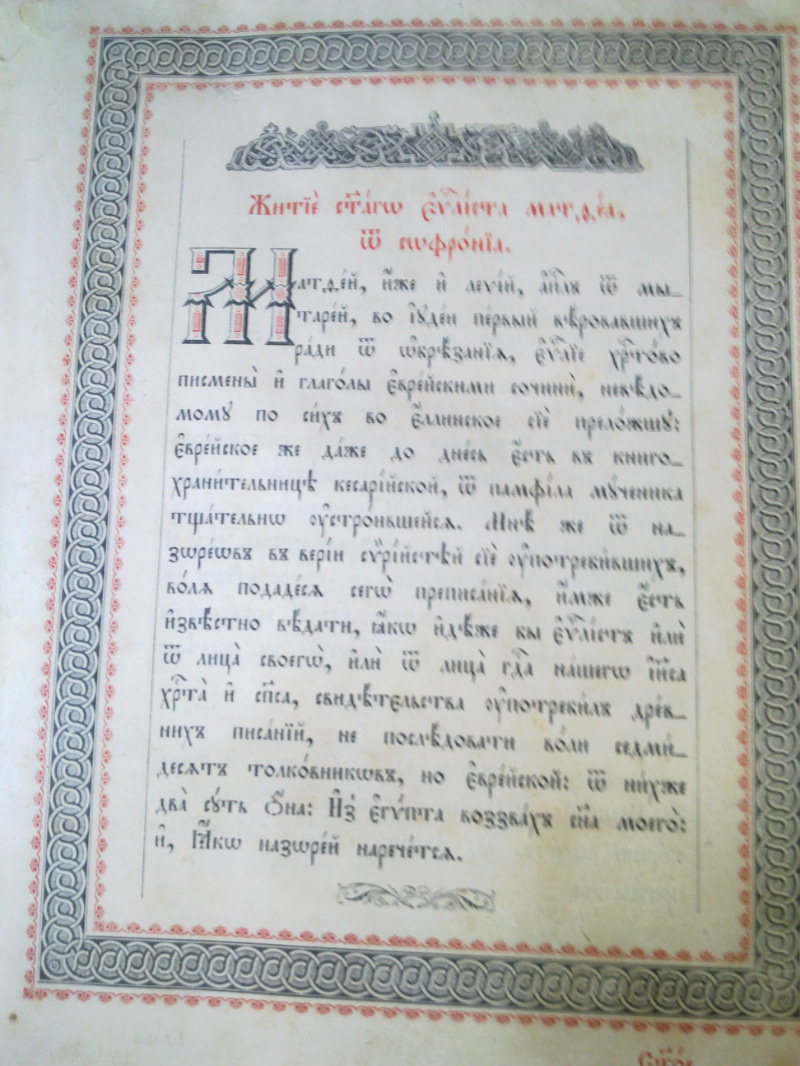 Житїѐ ст҃а́гѡ є҆ѵⷢ҇лі́ста матѳе́а,
ѿ сѡфро́нїа.
Матѳе́й, и҆́же и҆ леѵі́й, а҆пⷭ҇лъ ѿ мы_
таре́й, во і҆ꙋде́и пе́рвый вѣ́ровавшихъ
ра́ди ѿ ѡ҆брѣ́занїѧ, є҆ѵⷢ҇лїе хрⷭ҇то́во
писмены̀ и҆ глаго́лы є҆вре́йскими сочинѝ, невѣ́до_
момꙋ̀ по си́хъ во є҆́ллинское сїѐ прело́жшꙋ:
є҆вре́йское же да́же до дне́сь є҆́сть въ книго_
храни́тельницѣ кесарі́йской, ѿ памфі́ла мꙋ́ченика
тща́тельнѡ оу҆стро́ившейсѧ. Мнѣ́ же ѿ на_
зѡре́ѡвъ въ вері́и сѷрі́йстѣй сїѐ оу҆потреби́вшихъ,
во́лѧ подаде́сѧ сегѡ̀ преписа́нїѧ, и҆́мже є҆́сть
и҆звѣ́стно вѣ́дати, ꙗ҆́кѡ и҆дѣ́же бы є҆ѵⷢ҇лі́стъ и҆лѝ
ѿ лица̀ своегѡ̀, и҆лѝ ѿ лица̀ гдⷭ҇а на́шегѡ і҆и҃са
хрⷭ҇та̀ и҆ сп҃са, свидѣ́тельства оу҆потреби́лъ дре́в_
нихъ писа́нїй, не послѣ́довати во́ли седми_
десѧ́тъ толко́вникѡвъ, но є҆вре́йской: ѿ ни́хже
два̀ сꙋ́ть ѻ҆́на: И҆з̾ є҆гѵ́пта воззва́хъ сн҃а моего̀:
и҆, Ꙗ҆́кѡ назѡре́й нарече́тсѧ.